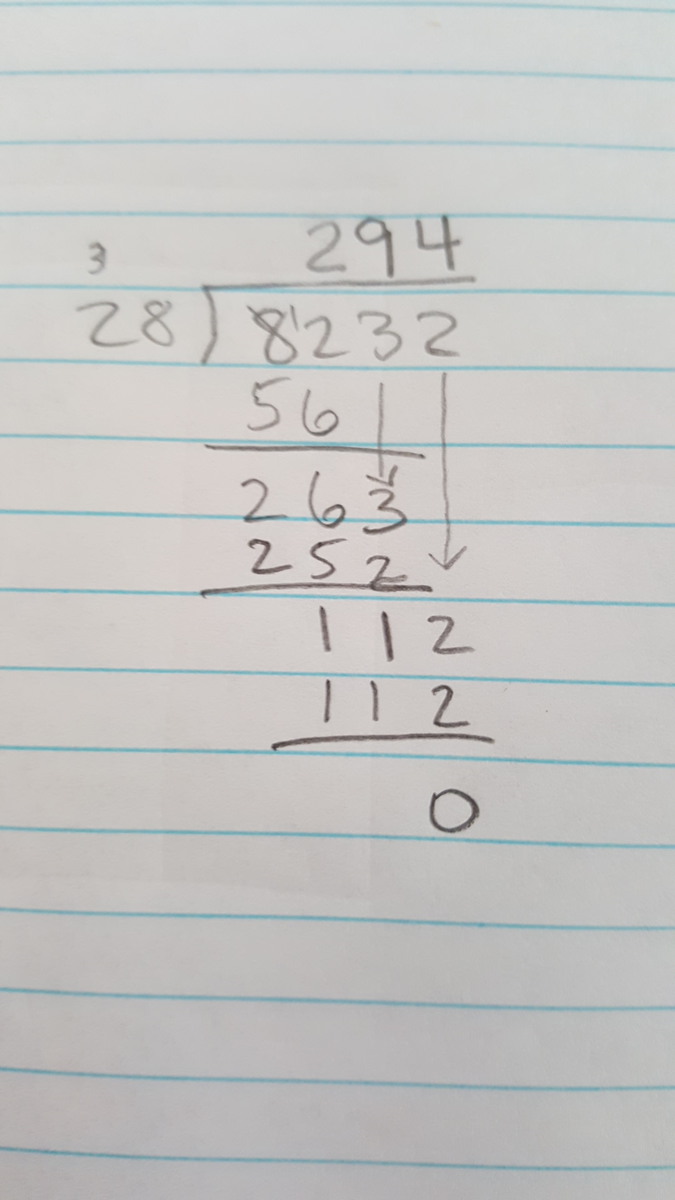 3 294
28)8'232
56
263
252
112
112
0